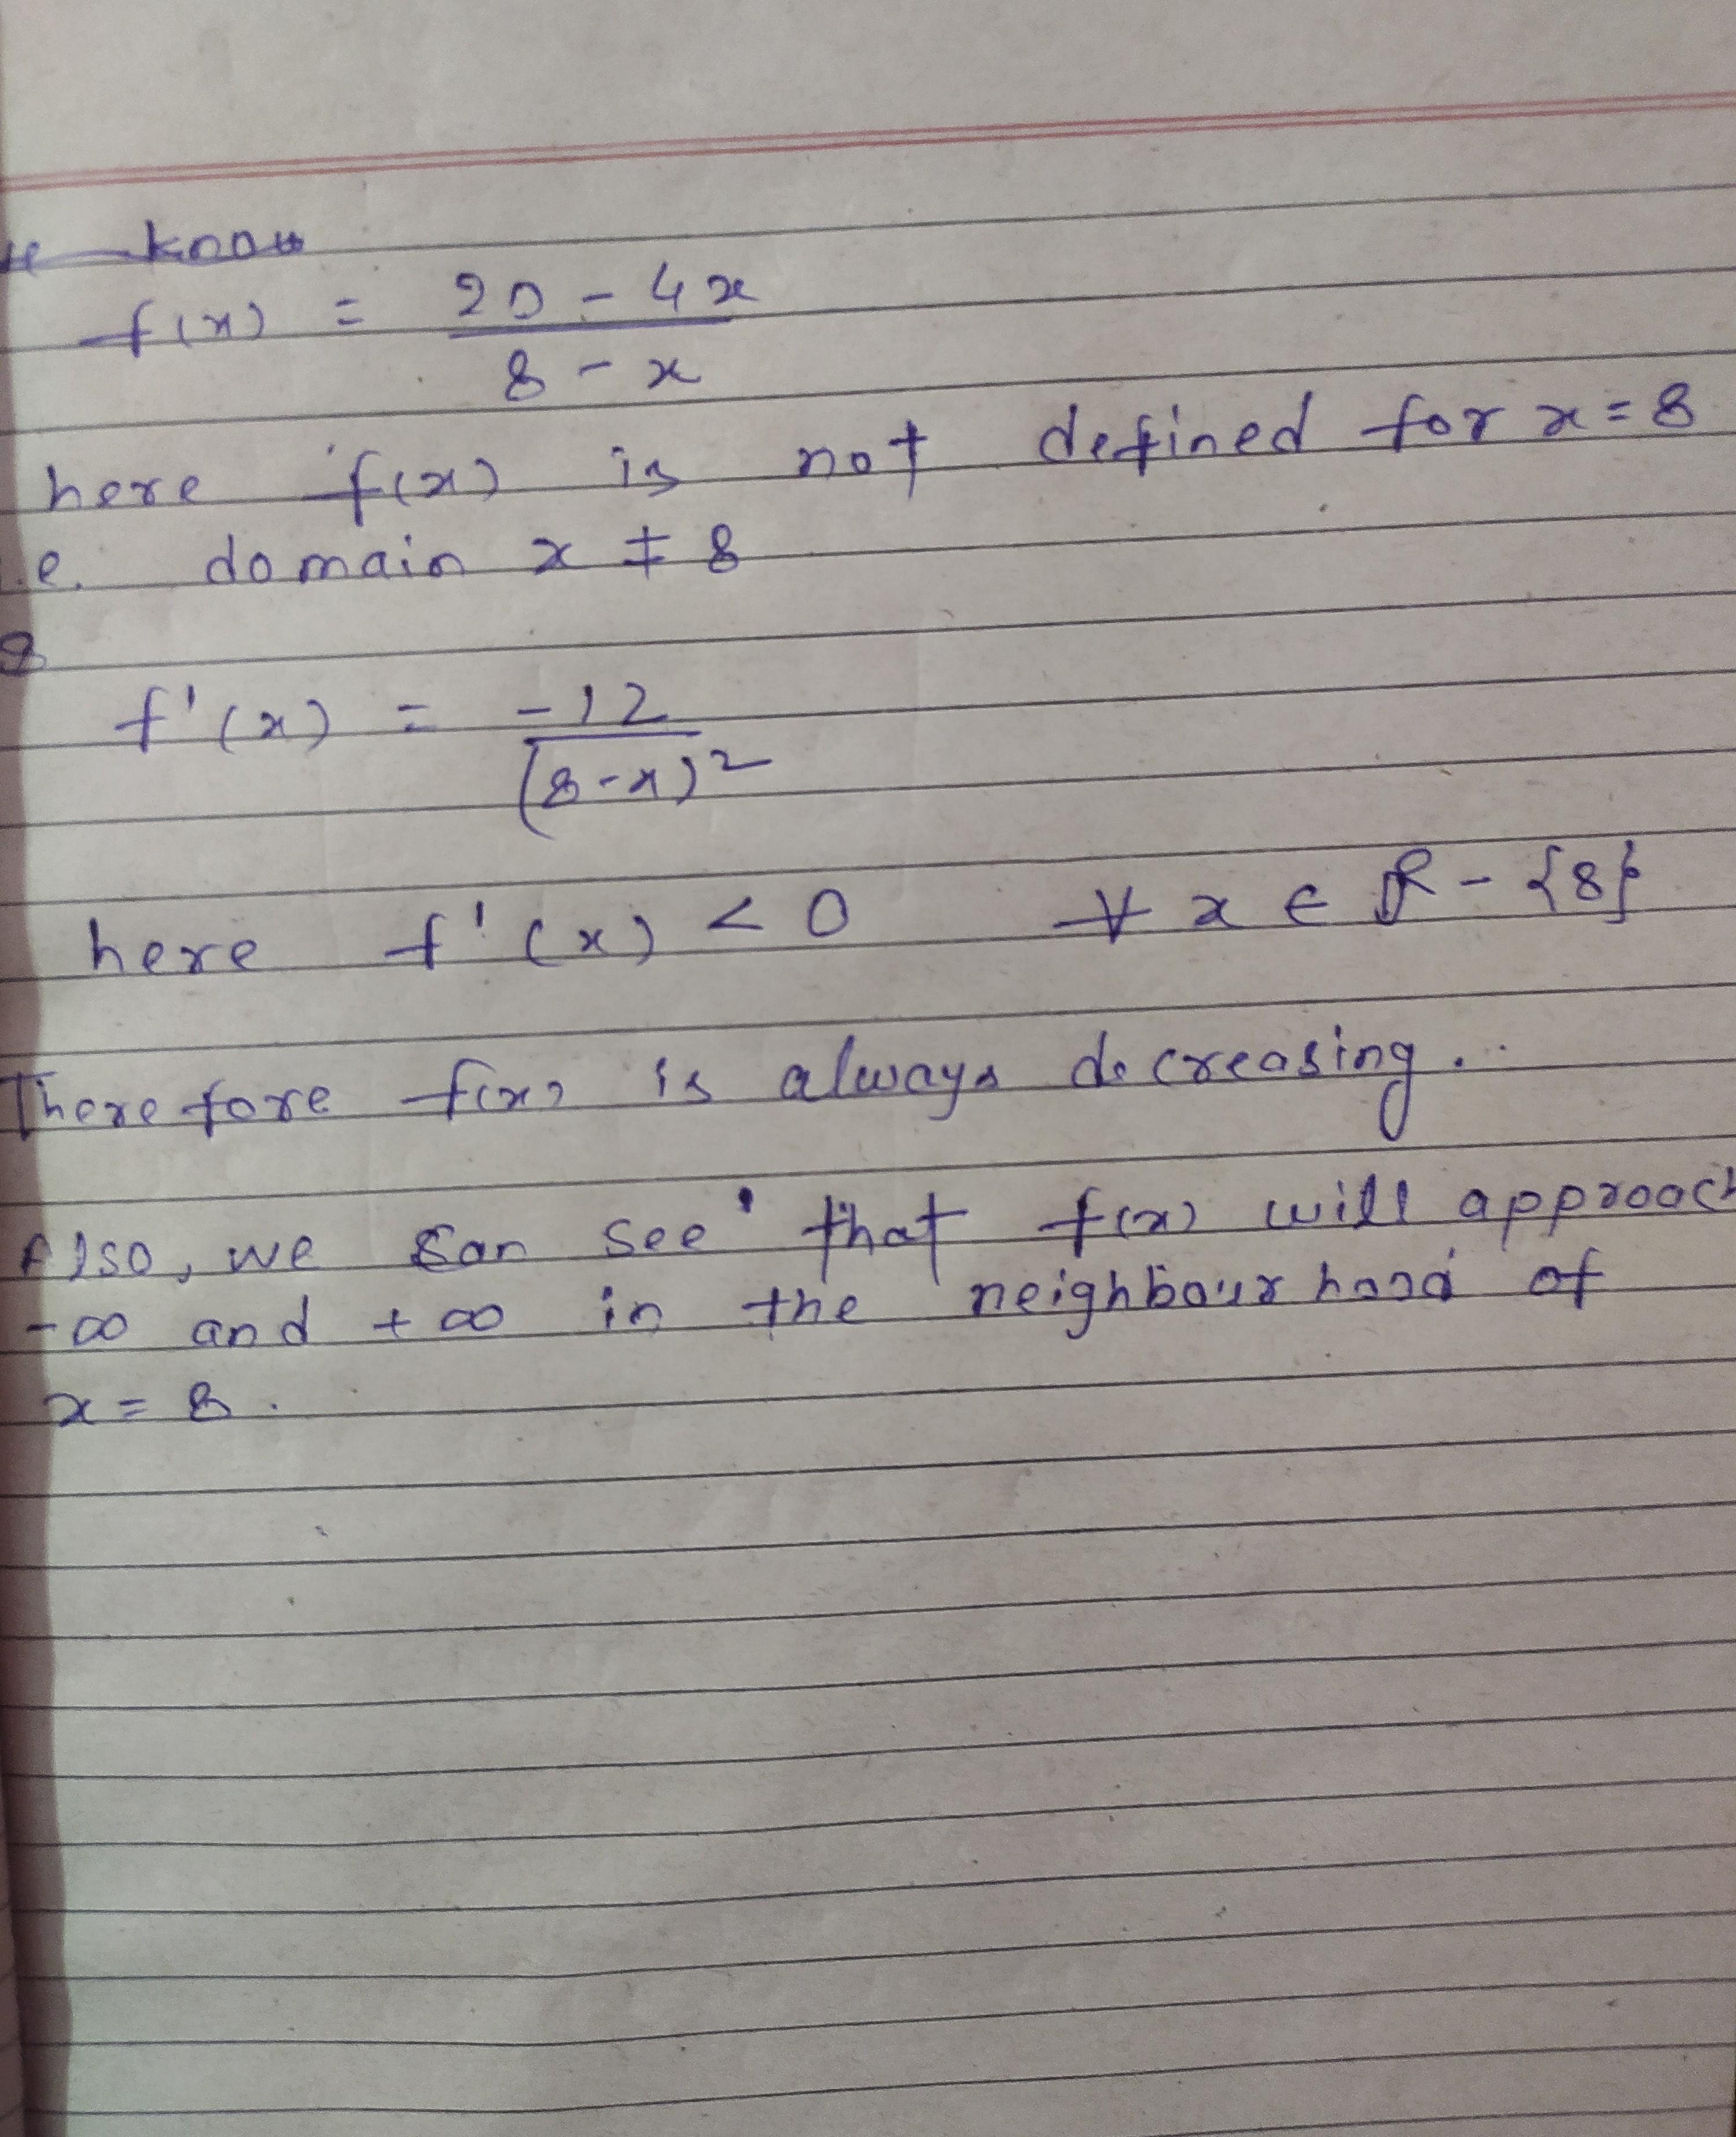 know
f(x) = 20 - 4x / 8 - x
here f(x) is not defined for x = 8
i.e. domain x ≠ 8
f'(x) = -12 / (8-x)²
here f'(x) < 0 ∀ x ∈ R - {8}
Therefore f(x) is always decreasing.
Also, we can see that f(x) will approach
-∞ and +∞ in the neighbourhood of
x = 8.